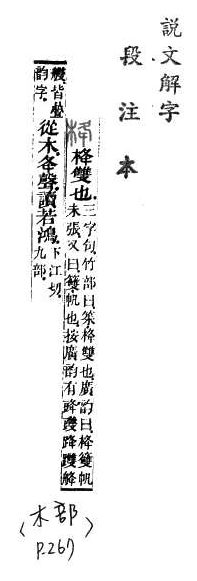 說文解字
段注本
栙 栙雙也。三字句。竹部曰。栙雙也。廣韵曰。栙雙帆
未張。又曰。䉶、帆也。按廣韵有
皆疊
韵字。從木。夅聲。讀若鴻。下江切。
九部。
〈木部〉
P.267